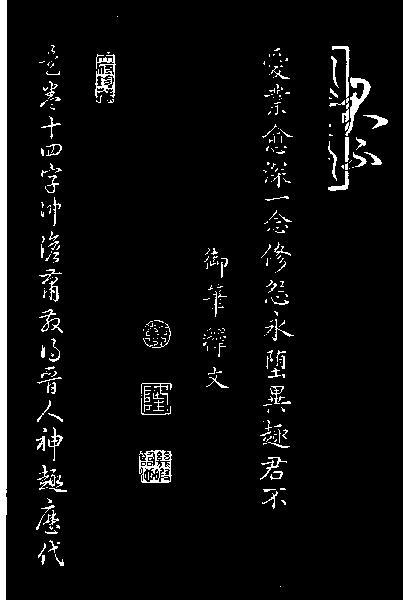 愛業愈深一念修怨永墮異趣君不
御筆釋文
是卷十四字沖澹蕭散得晉人神趣歷代